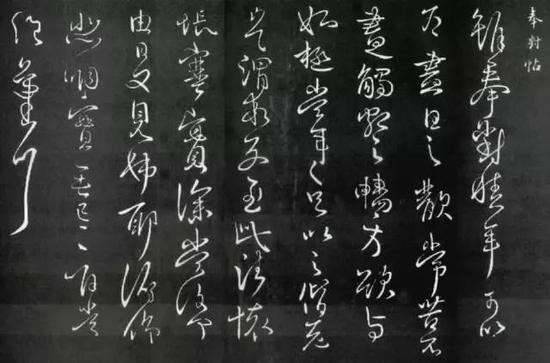 奉對帖
雖奉對積年可以
為盡日之歡常苦不
盡觸額之暢方欲与
姊極當年之足以之偕老
豈謂乖別至此諸懷
悵塞實深當復何
由日夕見姊耶俯仰
悲咽實無已已唯當
絕氣耳